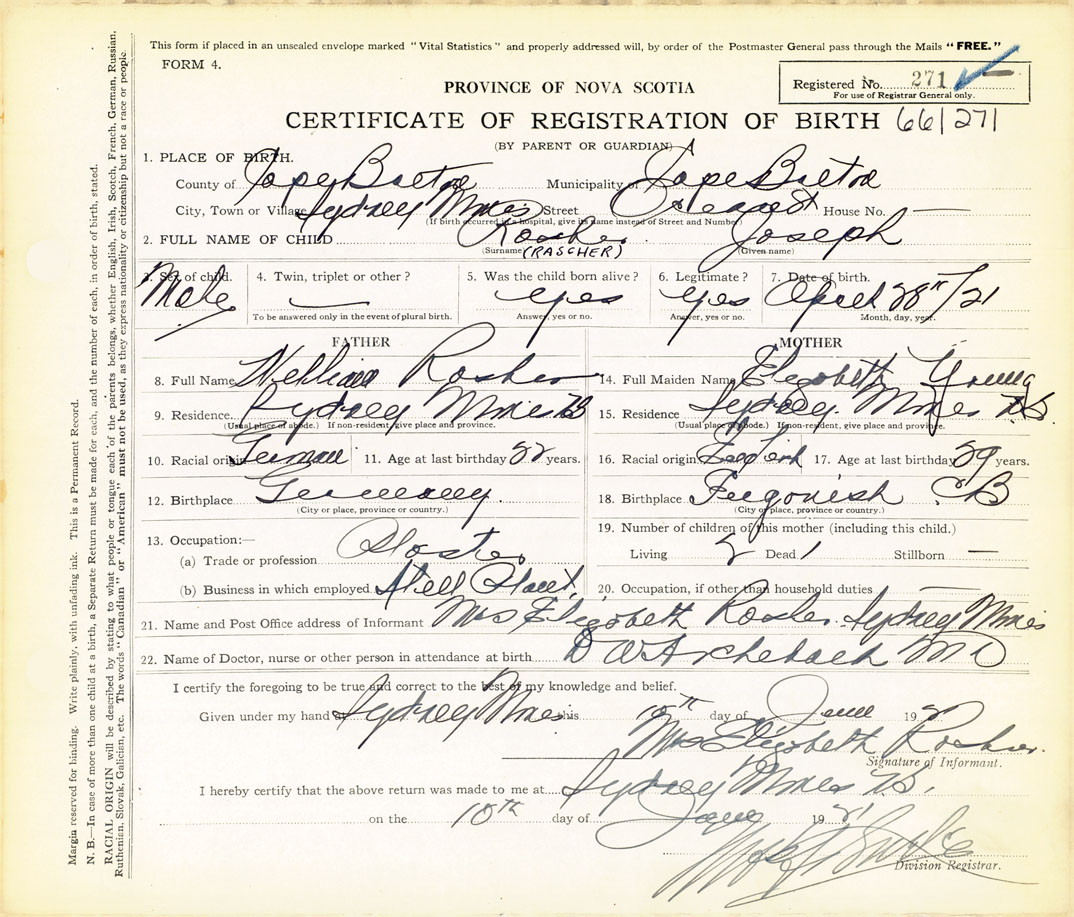 This form if placed in an unsealed envelope marked "Vital Statistics" and properly addressed will, by order of the Postmaster General pass through the Mails "FREE."
FORM 4.
Registered No. 271
For use of Registrar General only.
PROVINCE OF NOVA SCOTIA
CERTIFICATE OF REGISTRATION OF BIRTH 66/271
(BY PARENT OR GUARDIAN)
1. PLACE OF BIRTH.
County of Cape Breton Municipality of Cape Breton
City, Town or Village Sydney Mines Street House No. —
(If birth occurred in a hospital, give its name instead of Street and Number)
2. FULL NAME OF CHILD Rosher Joseph
(Surname) (RASCHER) (Given name)
3. Sex of child. 4. Twin, triplet or other? 5. Was the child born alive? 6. Legitimate? 7. Date of birth.
Male — yes yes April 28th/21
To be answered only in the event of plural birth. Answer, yes or no. Answer, yes or no. Month, day, year.
FATHER
8. Full Name William Rosher
9. Residence Sydney Mines
(Usual place of abode.) If non-resident, give place and province.
10. Racial origin German 11. Age at last birthday years.
12. Birthplace Germany
(City or place, province or country.)
13. Occupation:—
(a) Trade or profession
(b) Business in which employed Steel Plant
MOTHER
14. Full Maiden Name Elizabeth Young
15. Residence Sydney Mines N.S.
(Usual place of abode.) If non-resident, give place and province.
16. Racial origin English 17. Age at last birthday 29 years.
18. Birthplace Ingonish CB
(City or place, province or country.)
19. Number of children of this mother (including this child.)
Living Dead 1 Stillborn —
20. Occupation, if other than household duties
21. Name and Post Office address of Informant Mrs Elizabeth Rosher Sydney Mines
22. Name of Doctor, nurse or other person in attendance at birth MD
I certify the foregoing to be true and correct to the best of my knowledge and belief.
Given under my hand at Sydney Mines this 10th day of June 19
Mrs Elizabeth Rosher.
Signature of Informant.
I hereby certify that the above return was made to me at Sydney Mines N.S.
on the 10th day of June 1921
Division Registrar.
Margin reserved for binding. Write plainly, with unfading ink. This is a Permanent Record.
N. B.—In case of more than one child at a birth, a Separate Return must be made for each, and the number of each, in order of birth, stated.
RACIAL ORIGIN will be described by stating to what people or tongue each of the parents belongs, whether English, Irish, Scotch, French, German, Russian,
Ruthenian, Slovak, Galician, etc. The words "Canadian" or "American" must not be used, as they express nationality or citizenship but not a race or people.